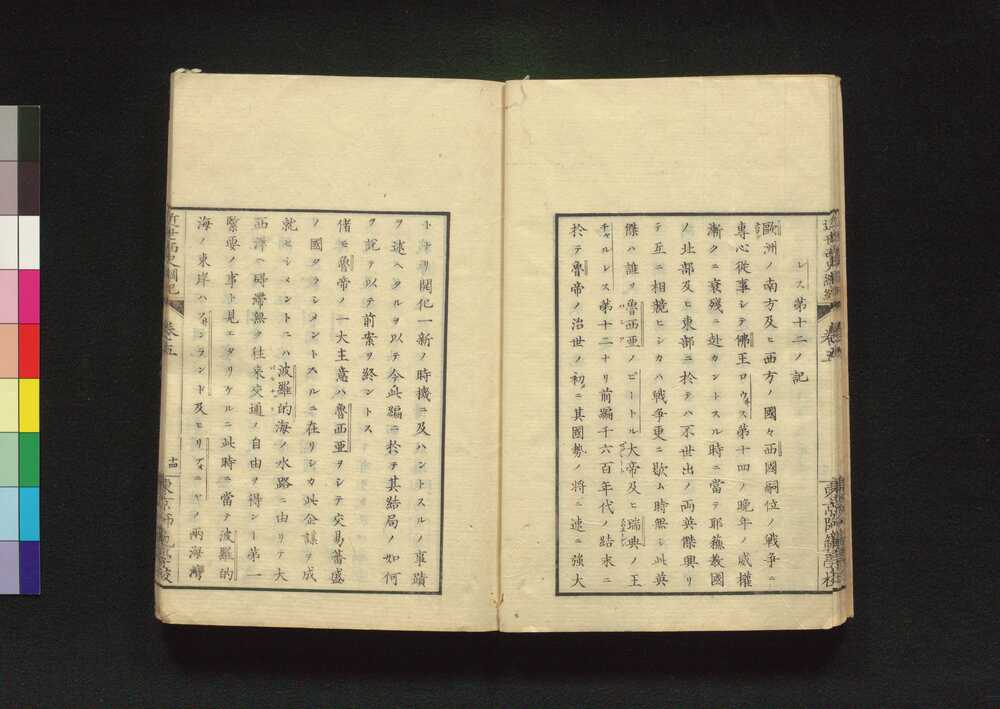 レス第十二ノ記
歐洲ノ南方及ヒ西方ノ國々西國嗣位ノ戦争ニ
專心従事シテ佛王ロウイス第十四ノ晩年ノ威權
漸クニ衰殘ニ赴カントスル時ニ當テ耶蘇教國
ノ北部及ヒ東部ニ於テハ不世出ノ両英傑興リ
テ互ニ相競ヒシカハ戦争更ニ歇ム時無シ此英
傑ハ誰ソ魯西亜ノピートル大帝及ヒ瑞典ノ王
チャルレス第十二ナリ前編千六百年代ノ結末ニ
於テ魯帝ノ治世ノ初メ其國勢ノ將ニ速ニ強大
トナリ開化一新ノ時機ニ及ハントスルノ事蹟
ヲ述ヘタルヲ以テ今此編ニ於テ其結局ノ如何
ヲ説テ以テ前案ヲ終ントス
偖モ魯帝ノ一大主意ハ魯西亜ヲシテ交易蕃盛
ノ國タラシメントスルニ在リシカ此企謀ヲ成
就セシメントニハ波羅的海ノ水路ニ由リテ大
西洋ヘ碍滞無ク往来交通ノ自由ヲ得ンー第一
緊要ノ事ト見エタリケルニ此時ニ當テ波羅的
海ノ東岸ハフィンランド及ヒリヴォニヤノ兩海灣
近世西史綱紀
卷之五
十四
東京師範學校